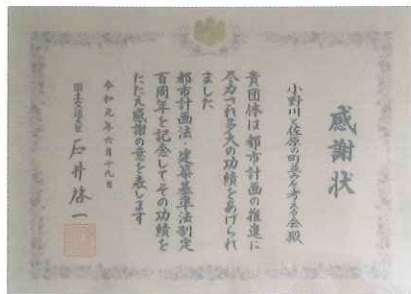 感謝状
小野川と佐原の町並みを考える会殿
貴団体は都市計画の推進に
尽力され多大の功績をあげられ
ました
都市計画法・建築基準法制定
百周年を記念してその功績を
たたえ感謝の意を表します
令和元年六月十九日
国土交通大臣 石井啓一